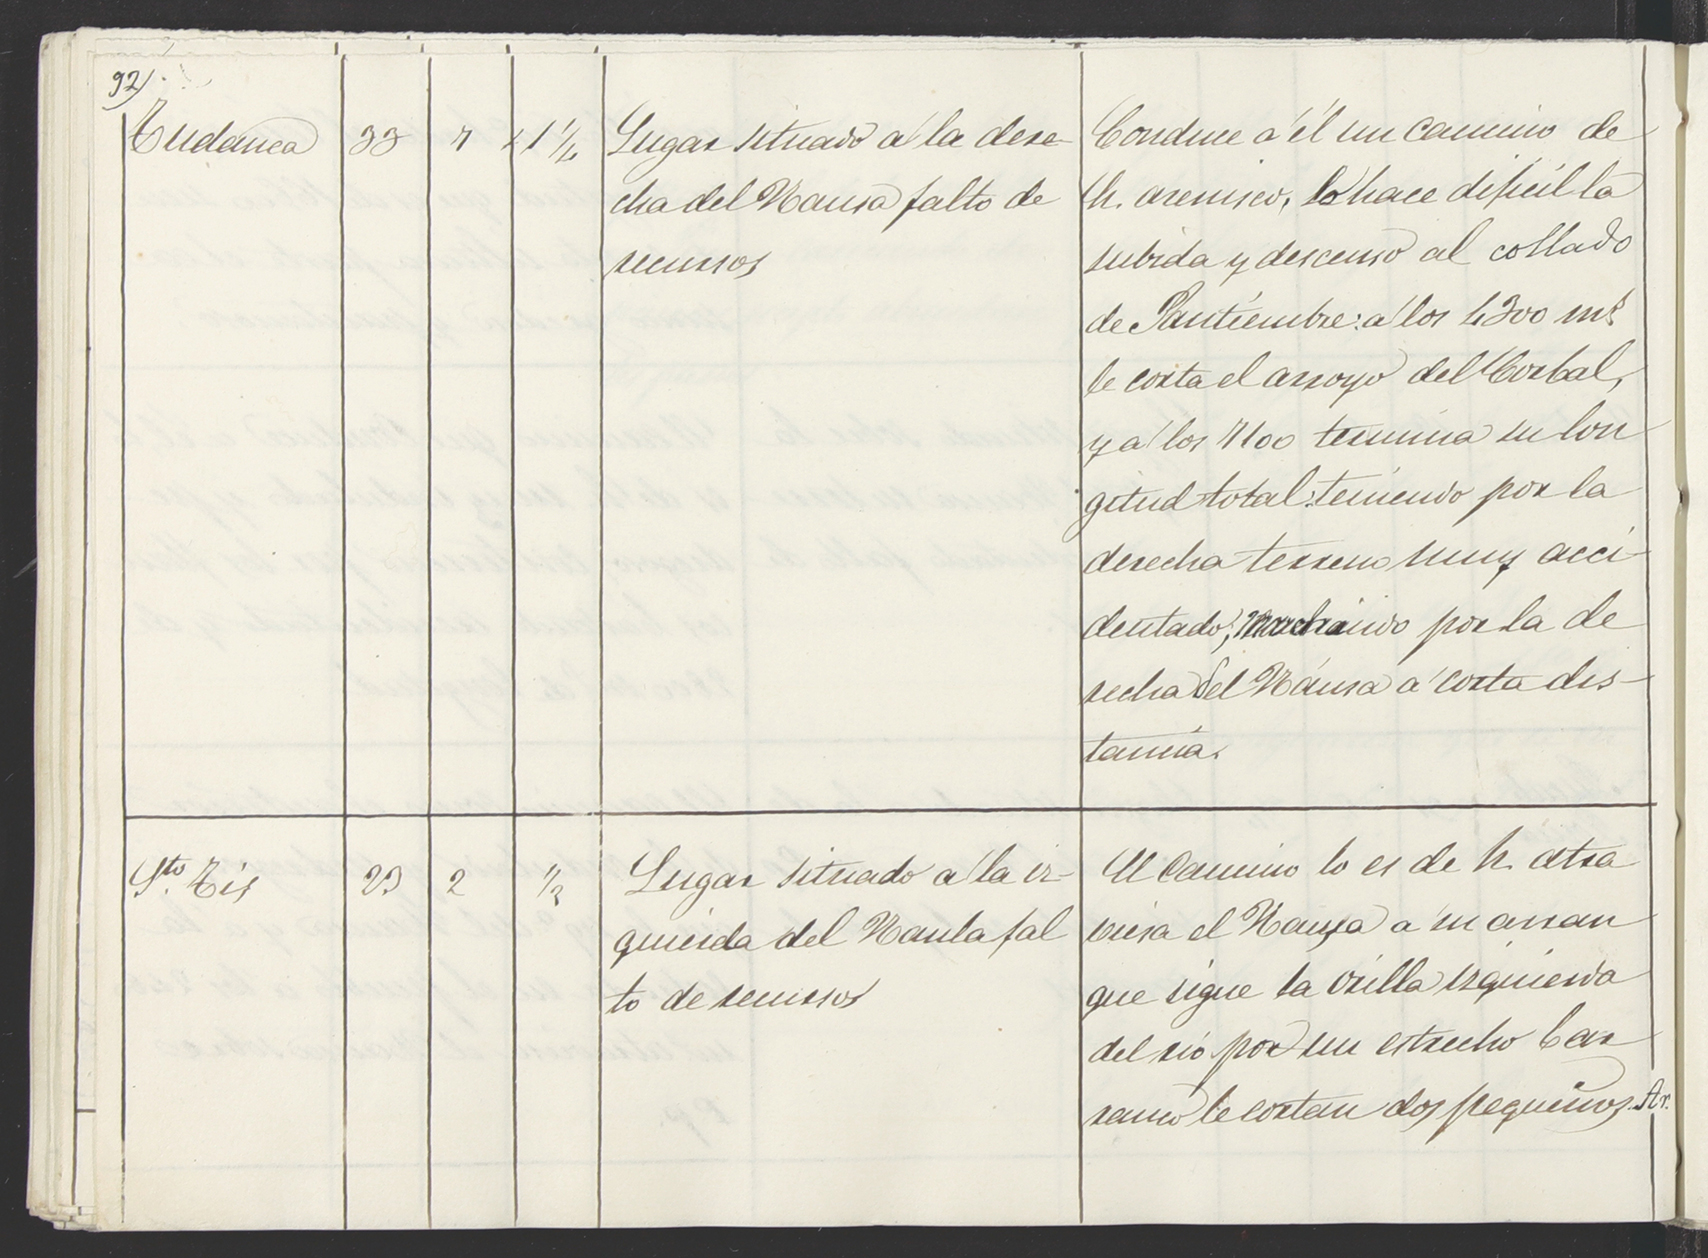 92)
Tudanca 33 7 1 1/2
Lugar situado a la dere-
cha del Nansa falto de
recursos
Conduce a él un camino de
h. arenisco, lo hace dificil la
subida y descenso al collado
de Santiembre: a los 4300 ms
le corta el arroyo del Corbal,
y a los 7100 termina su lon
gitud total: teniendo por la
derecha terreno muy acci-
dentado, marchando por la de
recha del Nansa a corta dis-
tancia.
Sto. Tis 23 2 1/2
Lugar situado a la iz-
quierda del Nansa fal
to de recursos
El Camino lo es de h. atra
viesa el Nansa a su arran
que sigue la orilla izquierda
del rio por un estrecho bar
ranco le cortan dos pequeños. Ar.